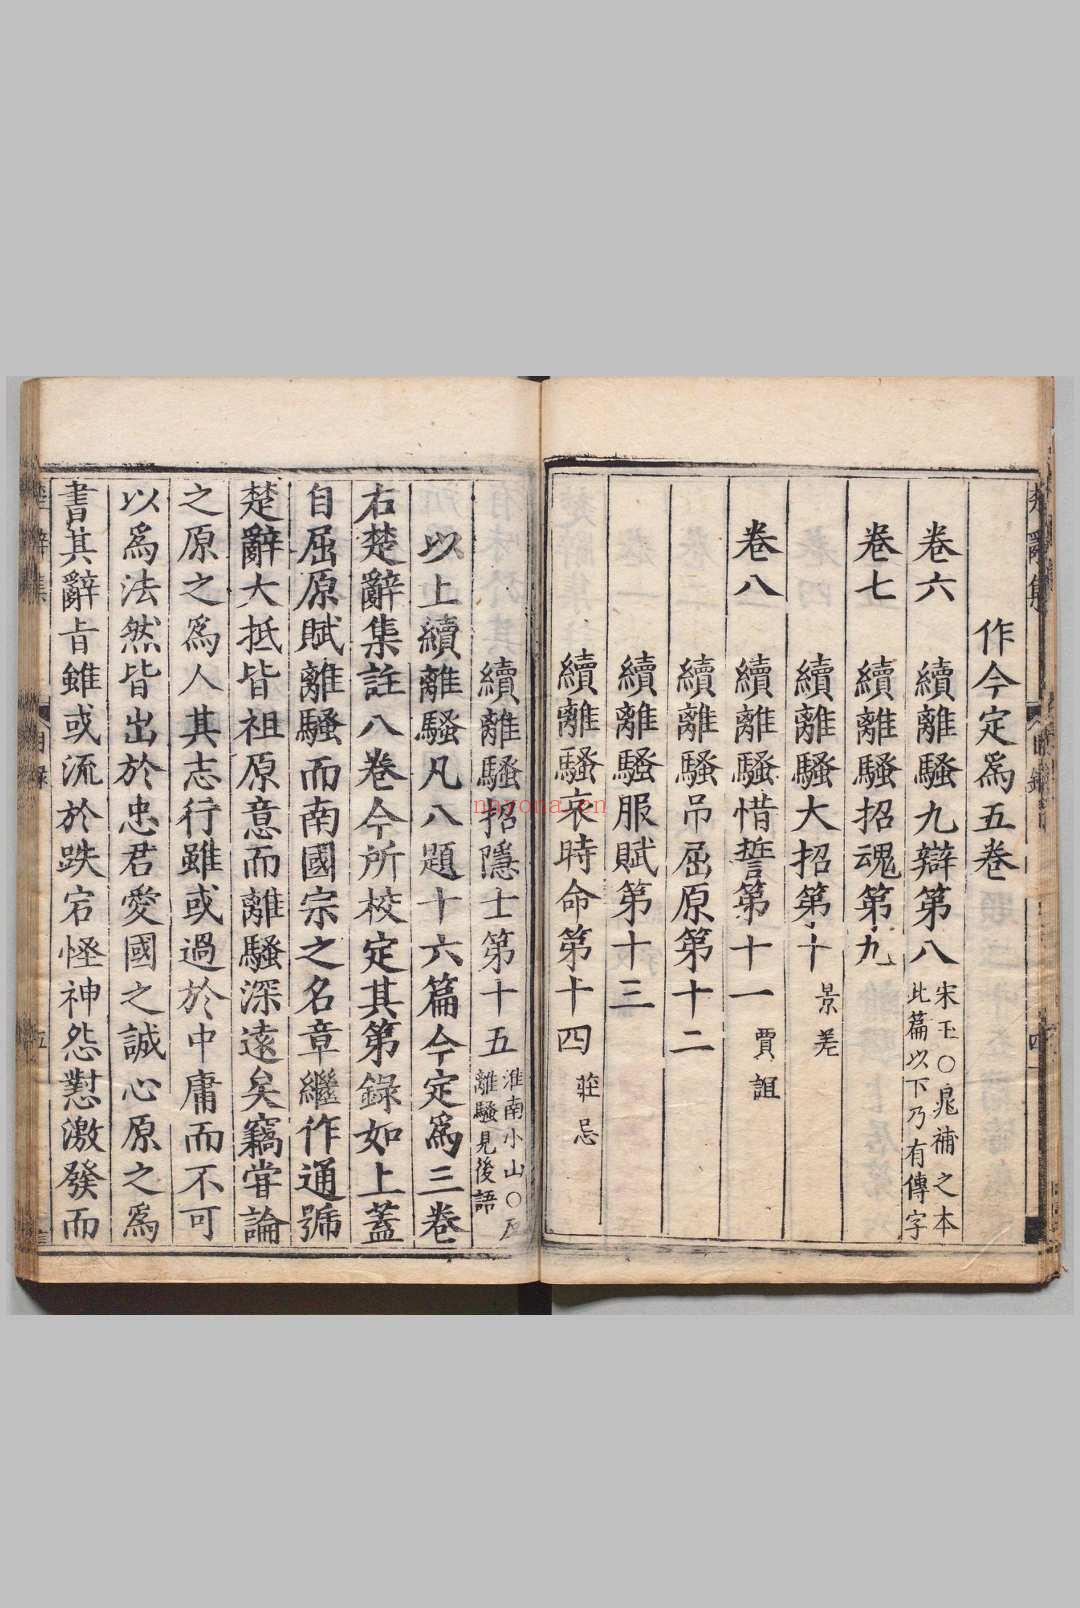 作今定爲五卷
卷六 續離騷九辯第八 宋玉○晁補之本此篇以下乃有傳字
卷七 續離騷招魂第九
續離騷大招第十 景差
卷八 續離騷惜誓第十一 賈誼
續離騷吊屈原第十二
續離騷服賦第十三
續離騷哀時命第十四 莊忌
續離騷招隱士第十五 淮南小山○反離騷見後語
以上續離騷凡八題十六篇今定爲三卷
右楚辭集註八卷今所校定其第録如上蓋
自屈原賦離騷而南國宗之名章繼作通號
楚辭大抵皆祖原意而離騷深遠矣竊甞論
之原之爲人其志行雖或過於中庸而不可
以爲法然皆出於忠君愛國之誠心原之爲
書其辭旨雖或流於跌宕怪神怨懟激發而
目録
五
nayona.cn